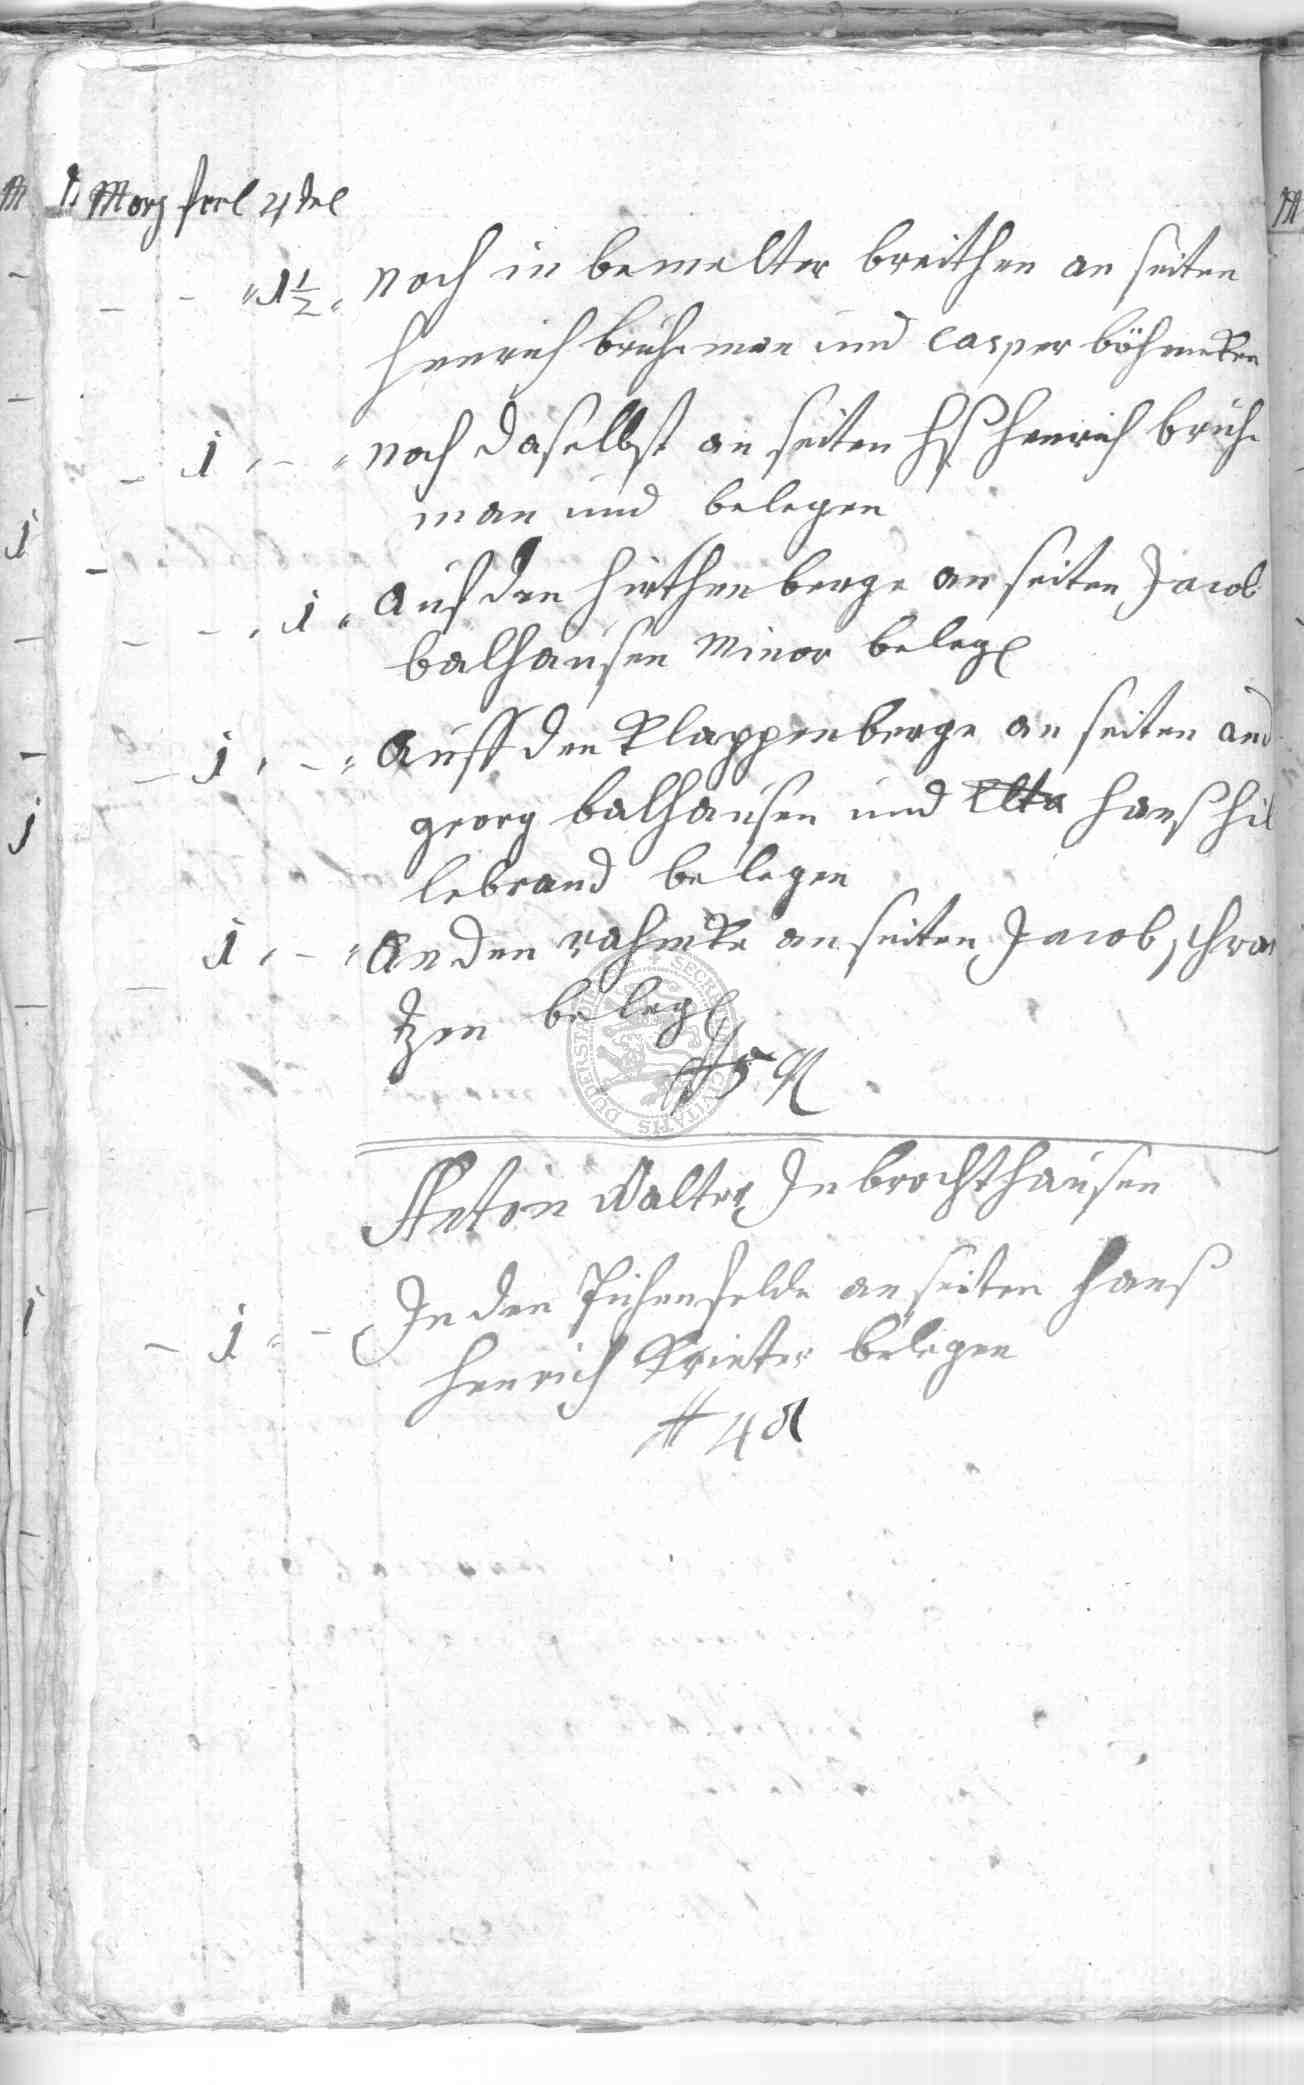 Morg 4tel
1½ noch in bemelter breithen an seiten
Henrich brühman und Casper böhmeken
1 noch daselbst an seiten Hß Henrich brüh-
man und belegen
1 Auf den Hirthenberge an seiten Jacob
balhausen Minor beleg
1 Auff den Klappenberge an seiten And
georg balhausen und Hanß Hil
lebrand belegen
1 An den rahmke an seiten Jacob schwar
tzen beleg
5
Anton Walter In brochthausen
1 In den an seiten Hanß
Henrich Krieter belegen
4
DUDERSTADIENSIS SECRETUM CIVITATIS